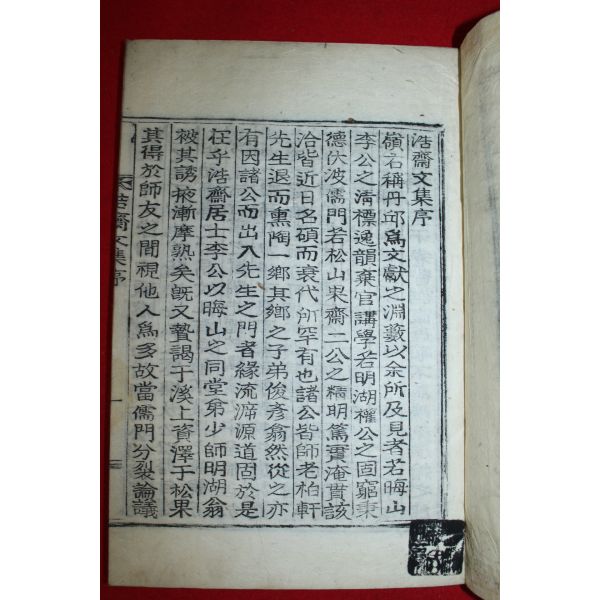 浩齋文集序
嶺右稱丹邱爲文獻之淵藪以余所及見者若晦山
李公之清標逸韻棄官講學若明湖權公之固窮秉
德伏波儒門若松山果齋二公之精明篤實淹貫該
洽皆近日名碩而衰代所罕有也諸公皆師老柏軒
先生退而熏陶一鄉其鄉之子弟俊彦翕然從之亦
有因諸公而出入先生之門者緣流泝源道固於是
在乎浩齋居士李公以晦山之同堂弟少師明湖翁
被其誘掖漸摩熟矣旣又贄謁于溪上資澤于松果
其得於師友之間視他人爲多故當儒門分裂論議
浩齋文集序
一